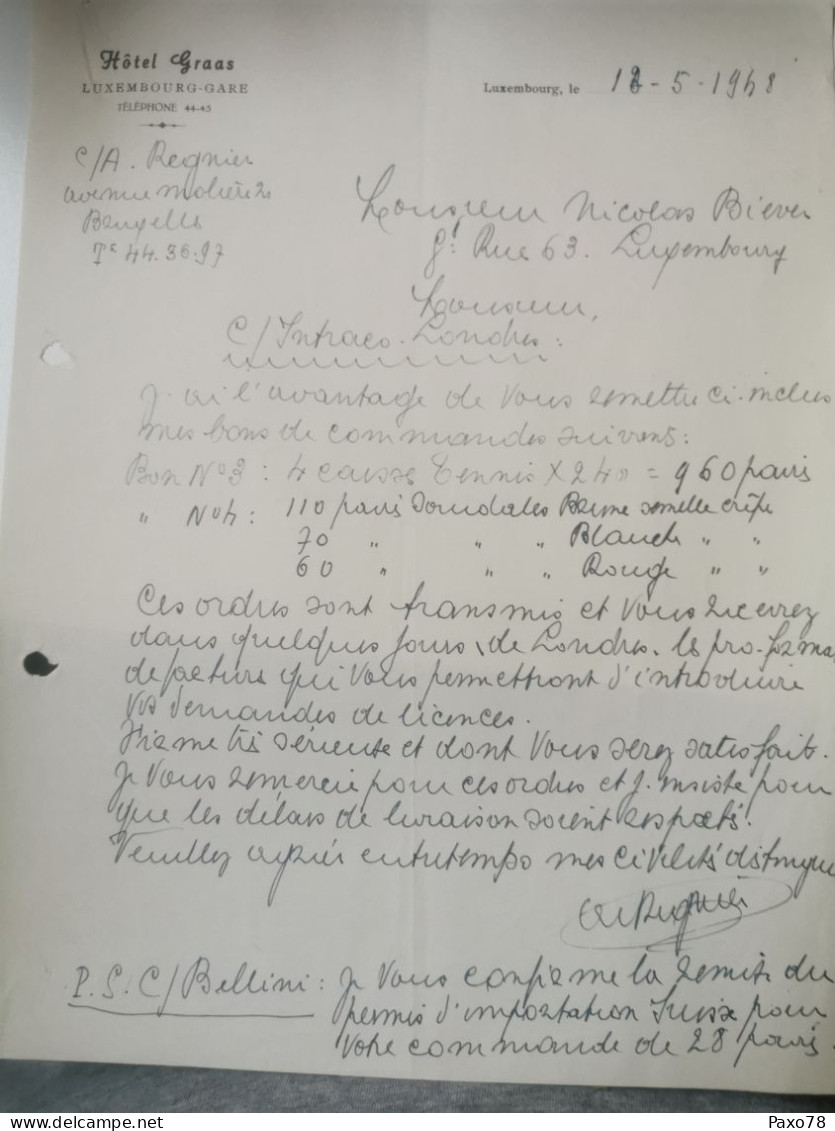 Hôtel Graas
LUXEMBOURG-GARE
TÉLÉPHONE 44-45
Luxembourg, le 18-5-1948
C/A. Regnier
avenue Molière
Bruxelles
Te 44.36.97
Monsieur Nicolas Biever
Gd Rue 63. Luxembourg
Monsieur,
C/Intraco-Londres:
J'ai l'avantage de vous remettre ci-inclus
mes bons de commandes suivens:
Bon No 3: 4 caisse Tennis x 240 = 960 pairs
" No 4: 110 pairs Sandales Brune semelle crêpe
70 " " " Blanch " "
60 " " " Rouge " "
Ces ordres sont transmis et Vous recevrez
dans quelques jours, de Londres, les pro-forma
de facture qui Vous permettront d'introduire
vos demandes de licences.
Firme très sérieuse et dont Vous serez satisfait.
Je Vous remercie pour ces ordres et j'insiste pour
que les délais de livraison soient respectés.
Veuillez agréer entretemps mes civilités distingué
Regnier
P.S. C/Bellini: Je Vous confirme la remise du
permis d'importation Suisse pour
votre commande de 28 pairs.
delcampe.net
Paxo78